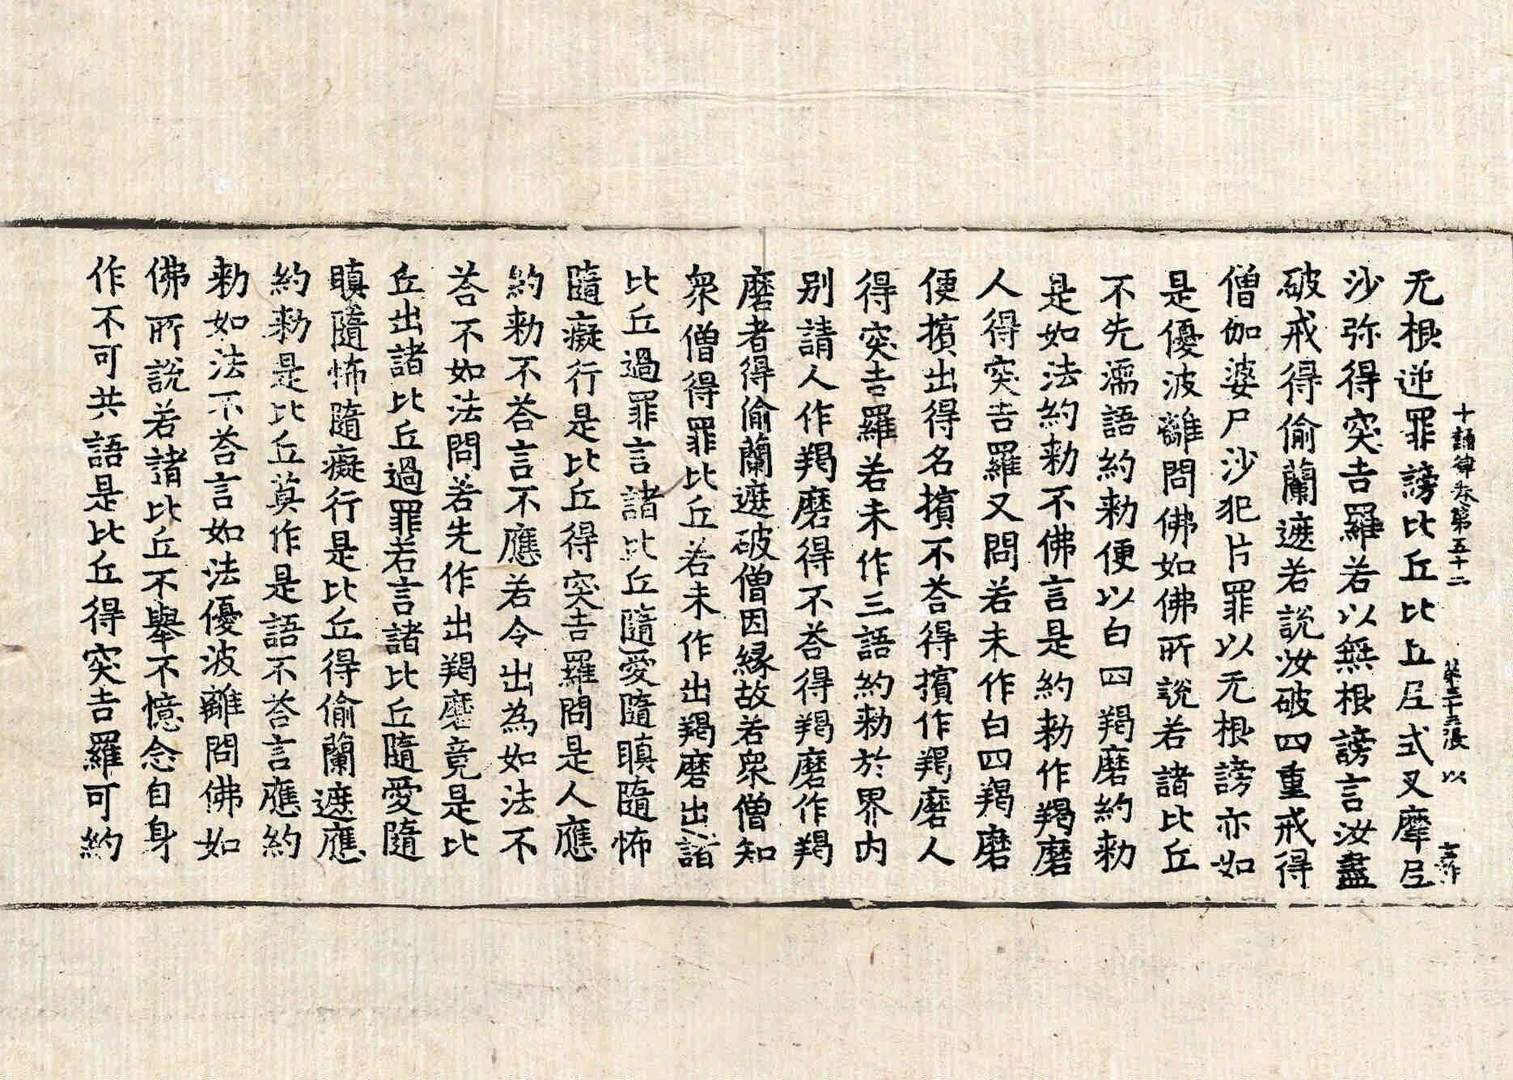 十誦律卷第五十二 第三十五張 以
无根逆罪謗比丘比丘尼式叉摩尼
沙弥得突吉羅若以無根謗言汝盡
破戒得偷蘭遮若說汝破四重戒得
僧伽婆尸沙犯片罪以无根謗亦如
是優波離問佛如佛所說若諸比丘
不先濡語約勑便以白四羯磨約勑
是如法約勑不佛言是約勑作羯磨
人得突吉羅又問若未作白四羯磨
便擯出得名擯不荅得擯作羯磨人
得突吉羅若未作三語約勑於界內
別請人作羯磨得不荅得羯磨作羯
磨者得偷蘭遮破僧因緣故若衆僧知
衆僧得罪比丘若未作出羯磨出詣
比丘過罪言諸比丘隨愛隨瞋隨怖
隨癡行是比丘得突吉羅問是人應
約勑不荅言不應若令出為如法不
荅不如法問若先作出羯磨竟是比
丘出諸比丘過罪若言諸比丘隨愛隨
瞋隨怖隨癡行是比丘得偷蘭遮應
約勑是比丘莫作是語不荅言應約
勑如法不荅言如法優波離問佛如
佛所說若諸比丘不舉不憶念自身
作不可共語是比丘得突吉羅可約